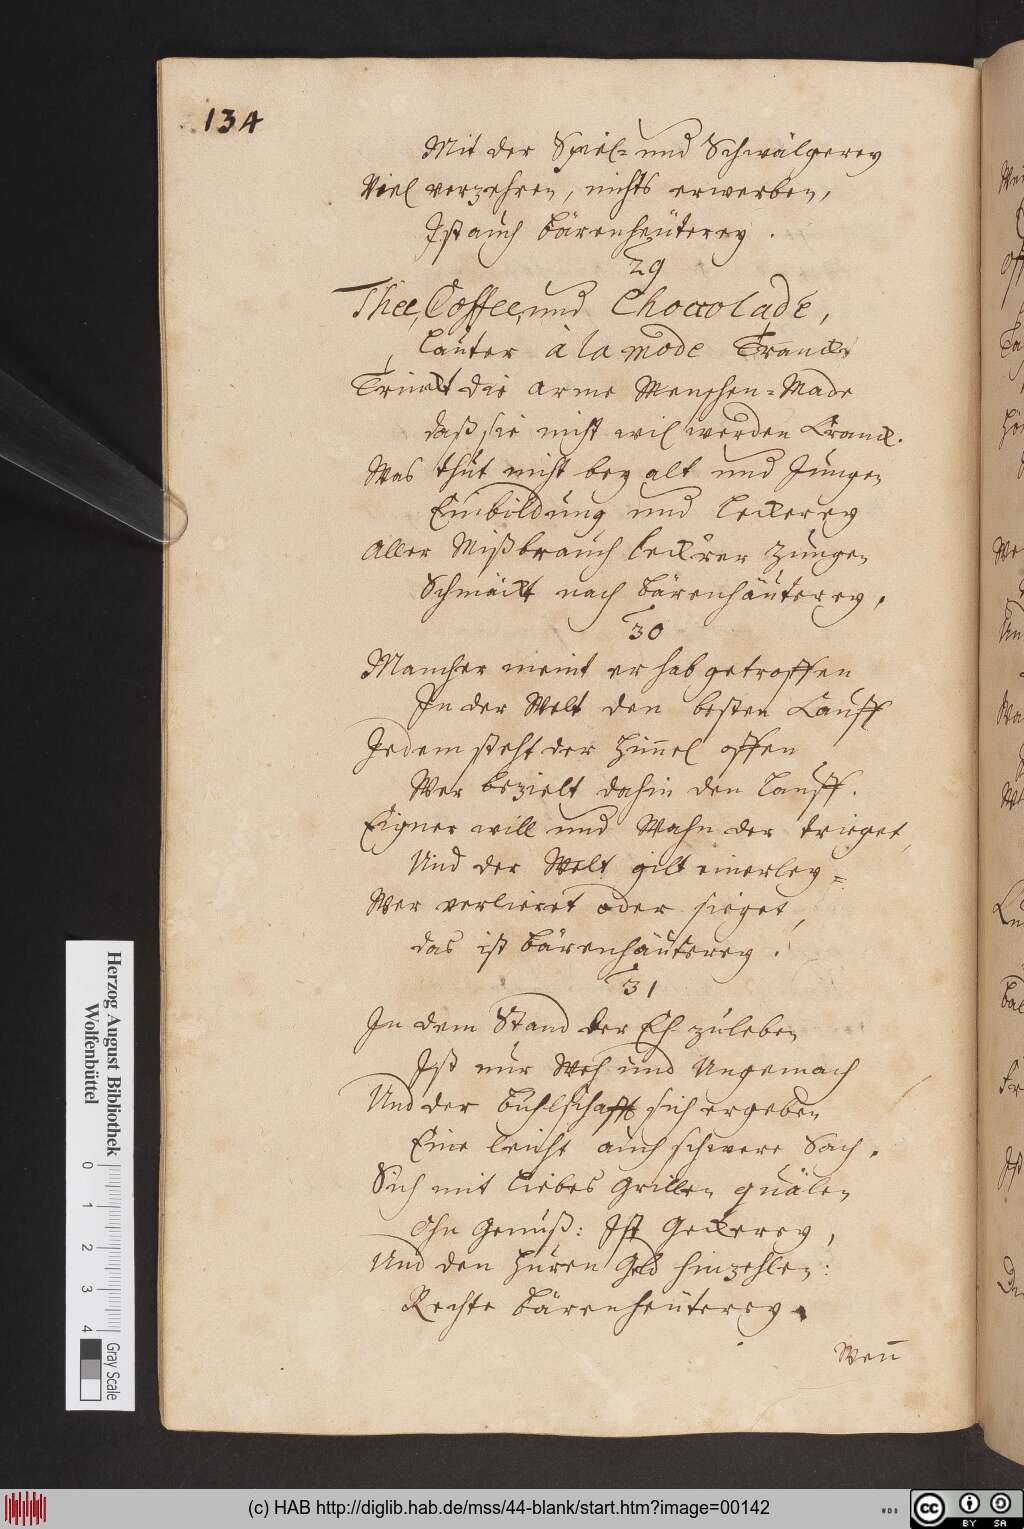 134
Mit der Spiel= und Schwälgerey
Viel verzehren, nichts erwerben,
Ist auch bärenheüterey.
29
Thee, Coffee, und Choccolade,
lauter à la mode Tranck
Trinckt die arme Menschen=Made
daß sie nicht wil werden Cranck.
Was thut nicht bey alt und Jungen
Einbildung und leckerey
Aller Mißbrauch leckrer Zungen
Schmäckt nach bärenhäüterey,
30
Mancher meint er hab getroffen
In der Welt den besten Lauff
Jedem steht der Him̅el offen
Wer bezielt dahin den lauff.
Eigner will und Wahn der trieget,
Und der Welt gilt einerley=
Wer verlieret oder sieget,
das ist bärenhäuterey.
31
In dem Stand der Eh zuleben
Ist nur Weh und Ungemach
Und der buhlschafft sich ergeben
Eine leicht auch schwere Sach.
Sich mit liebes Grillen quälen
Ohn Genuß: Ist Geckerey,
Und den Huren Geld hinzehlen:
Rechte bärenheüterey.
Wen̅
Herzog August Bibliothek
Wolfenbüttel
0 1 2 3 4
Gray Scale
(c) HAB http://diglib.hab.de/mss/44-blank/start.htm?image=00142
WDB
CC BY SA